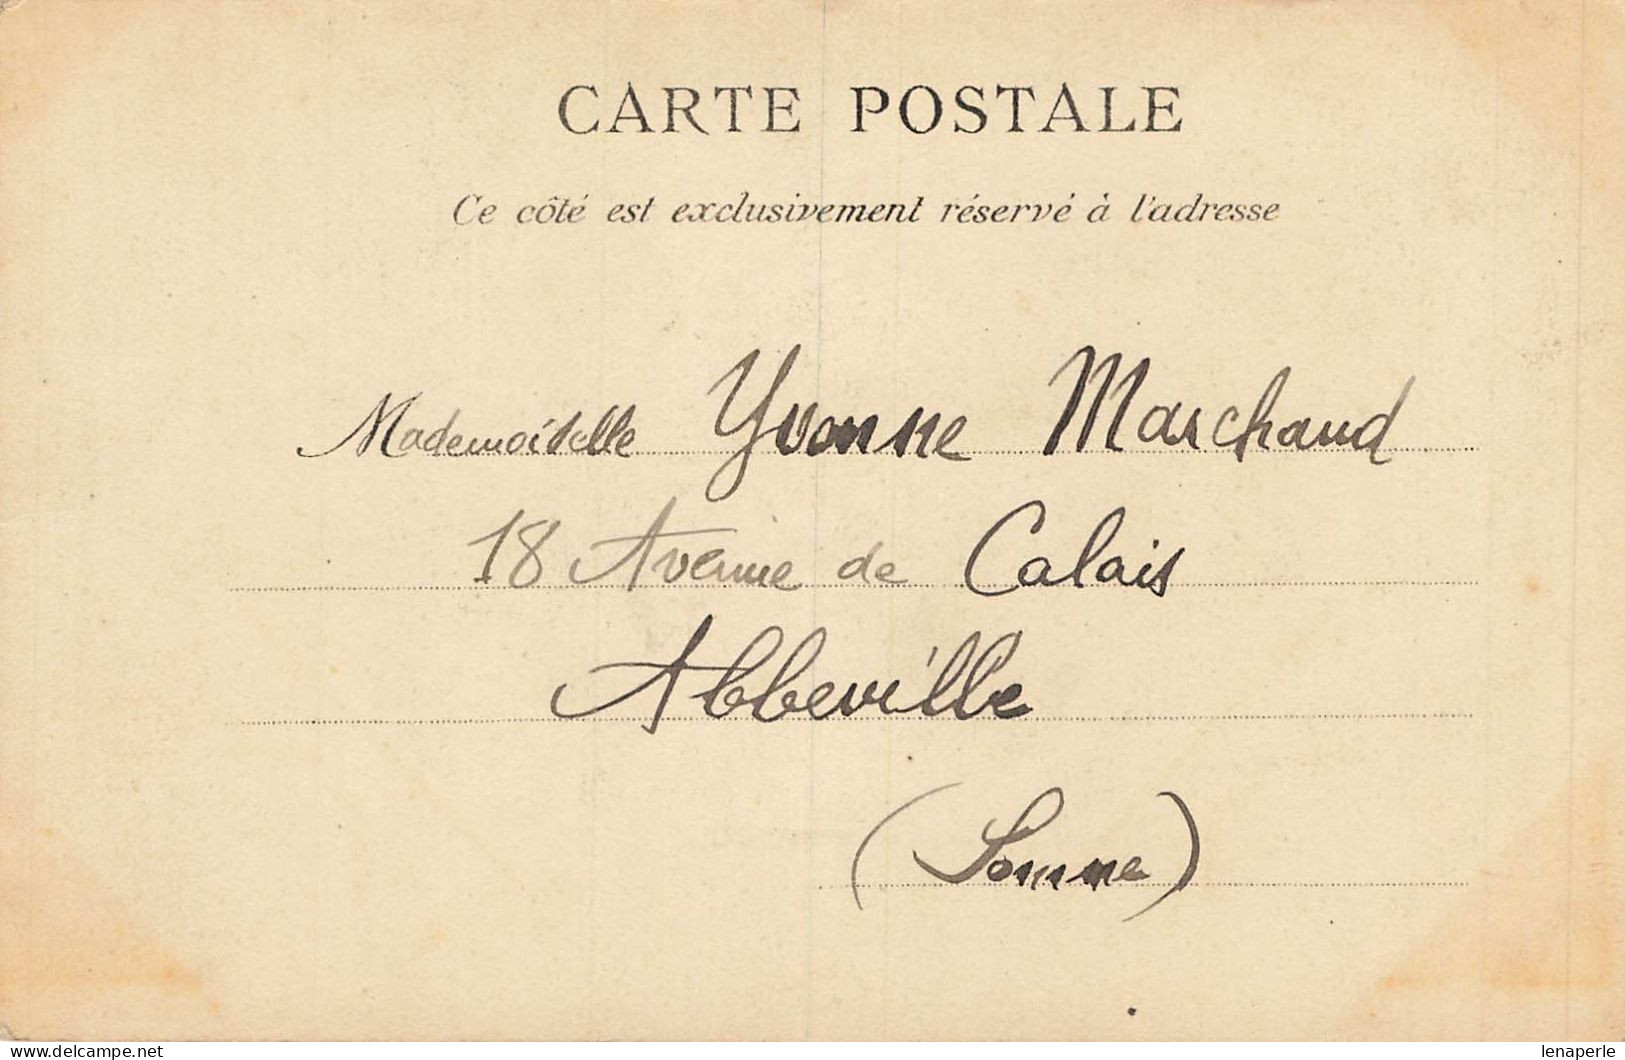 CARTE POSTALE
Ce côté est exclusivement réservé à l'adresse
Mademoiselle Yvonne Marchand
18 Avenue de Calais
Abbeville
(Somme)
delcampe.net
lenaperle